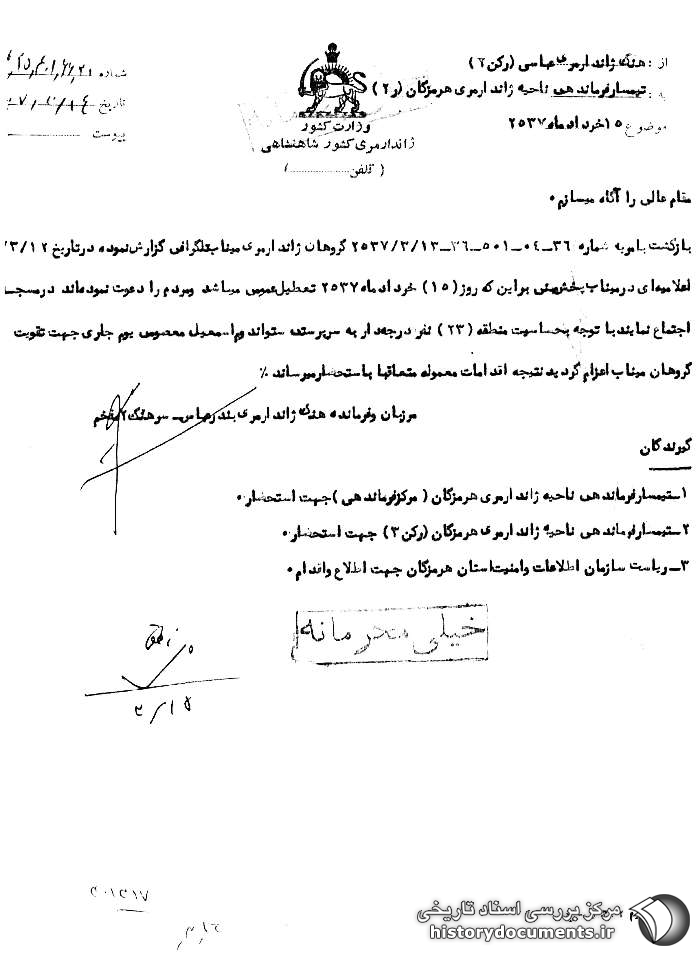 از : هنگ ژاندارمری عباسی (رکن ۲)
به : تیمسار فرماندهی ناحیه ژاندارمری هرمزگان (ر ۲)
موضوع ۱۵ خرداد ماه ۲۵۳۷
شماره
تاریخ
پیوست
وزارت کشور
ژاندارمری کشور شاهنشاهی
(تلفن)
مقام عالی را آگاه میسازم۰
بازگشت بامریه شماره ۳۶-۰۴-۵۰۱-۳۶-۲۵۳۷/۳/۱۳ گروهان ژاندارمری میناب تلگرافی گزارش نموده در تاریخ ۳/۱۲/
اعلامیه‌ای در میناب پخش مبنی براین که روز (۱۵) خرداد ماه ۲۵۳۷ تعطیل عمومی میباشد و مردم را دعوت نموده‌اند در مسجد
اجتماع نمایند با توجه بحساسیت منطقه (۲۳) نفر درجه‌دار به سرپرستی ستواندوم اسمعیل معصومی یوم جاری جهت تقویت
گروهان میناب اعزام گردید نتیجه اقدامات معموله متعاقبا باستحضار میرساند ٪
مرزبان و فرمانده هنگ ژاندارمری بندرعباس - سرهنگ ۲ مفخم
گیرندگان
۱- تیمسار فرماندهی ناحیه ژاندارمری هرمزگان (مرکز فرماندهی) جهت استحضار۰
۲- تیمسار فرماندهی ناحیه ژاندارمری هرمزگان (رکن ۳) جهت استحضار۰
۳- ریاست سازمان اطلاعات و امنیت استان هرمزگان جهت اطلاع و اقدام۰
خیلی محرمانه
۳/۱۵
مرکز بررسی اسناد تاریخی
historydocuments.ir